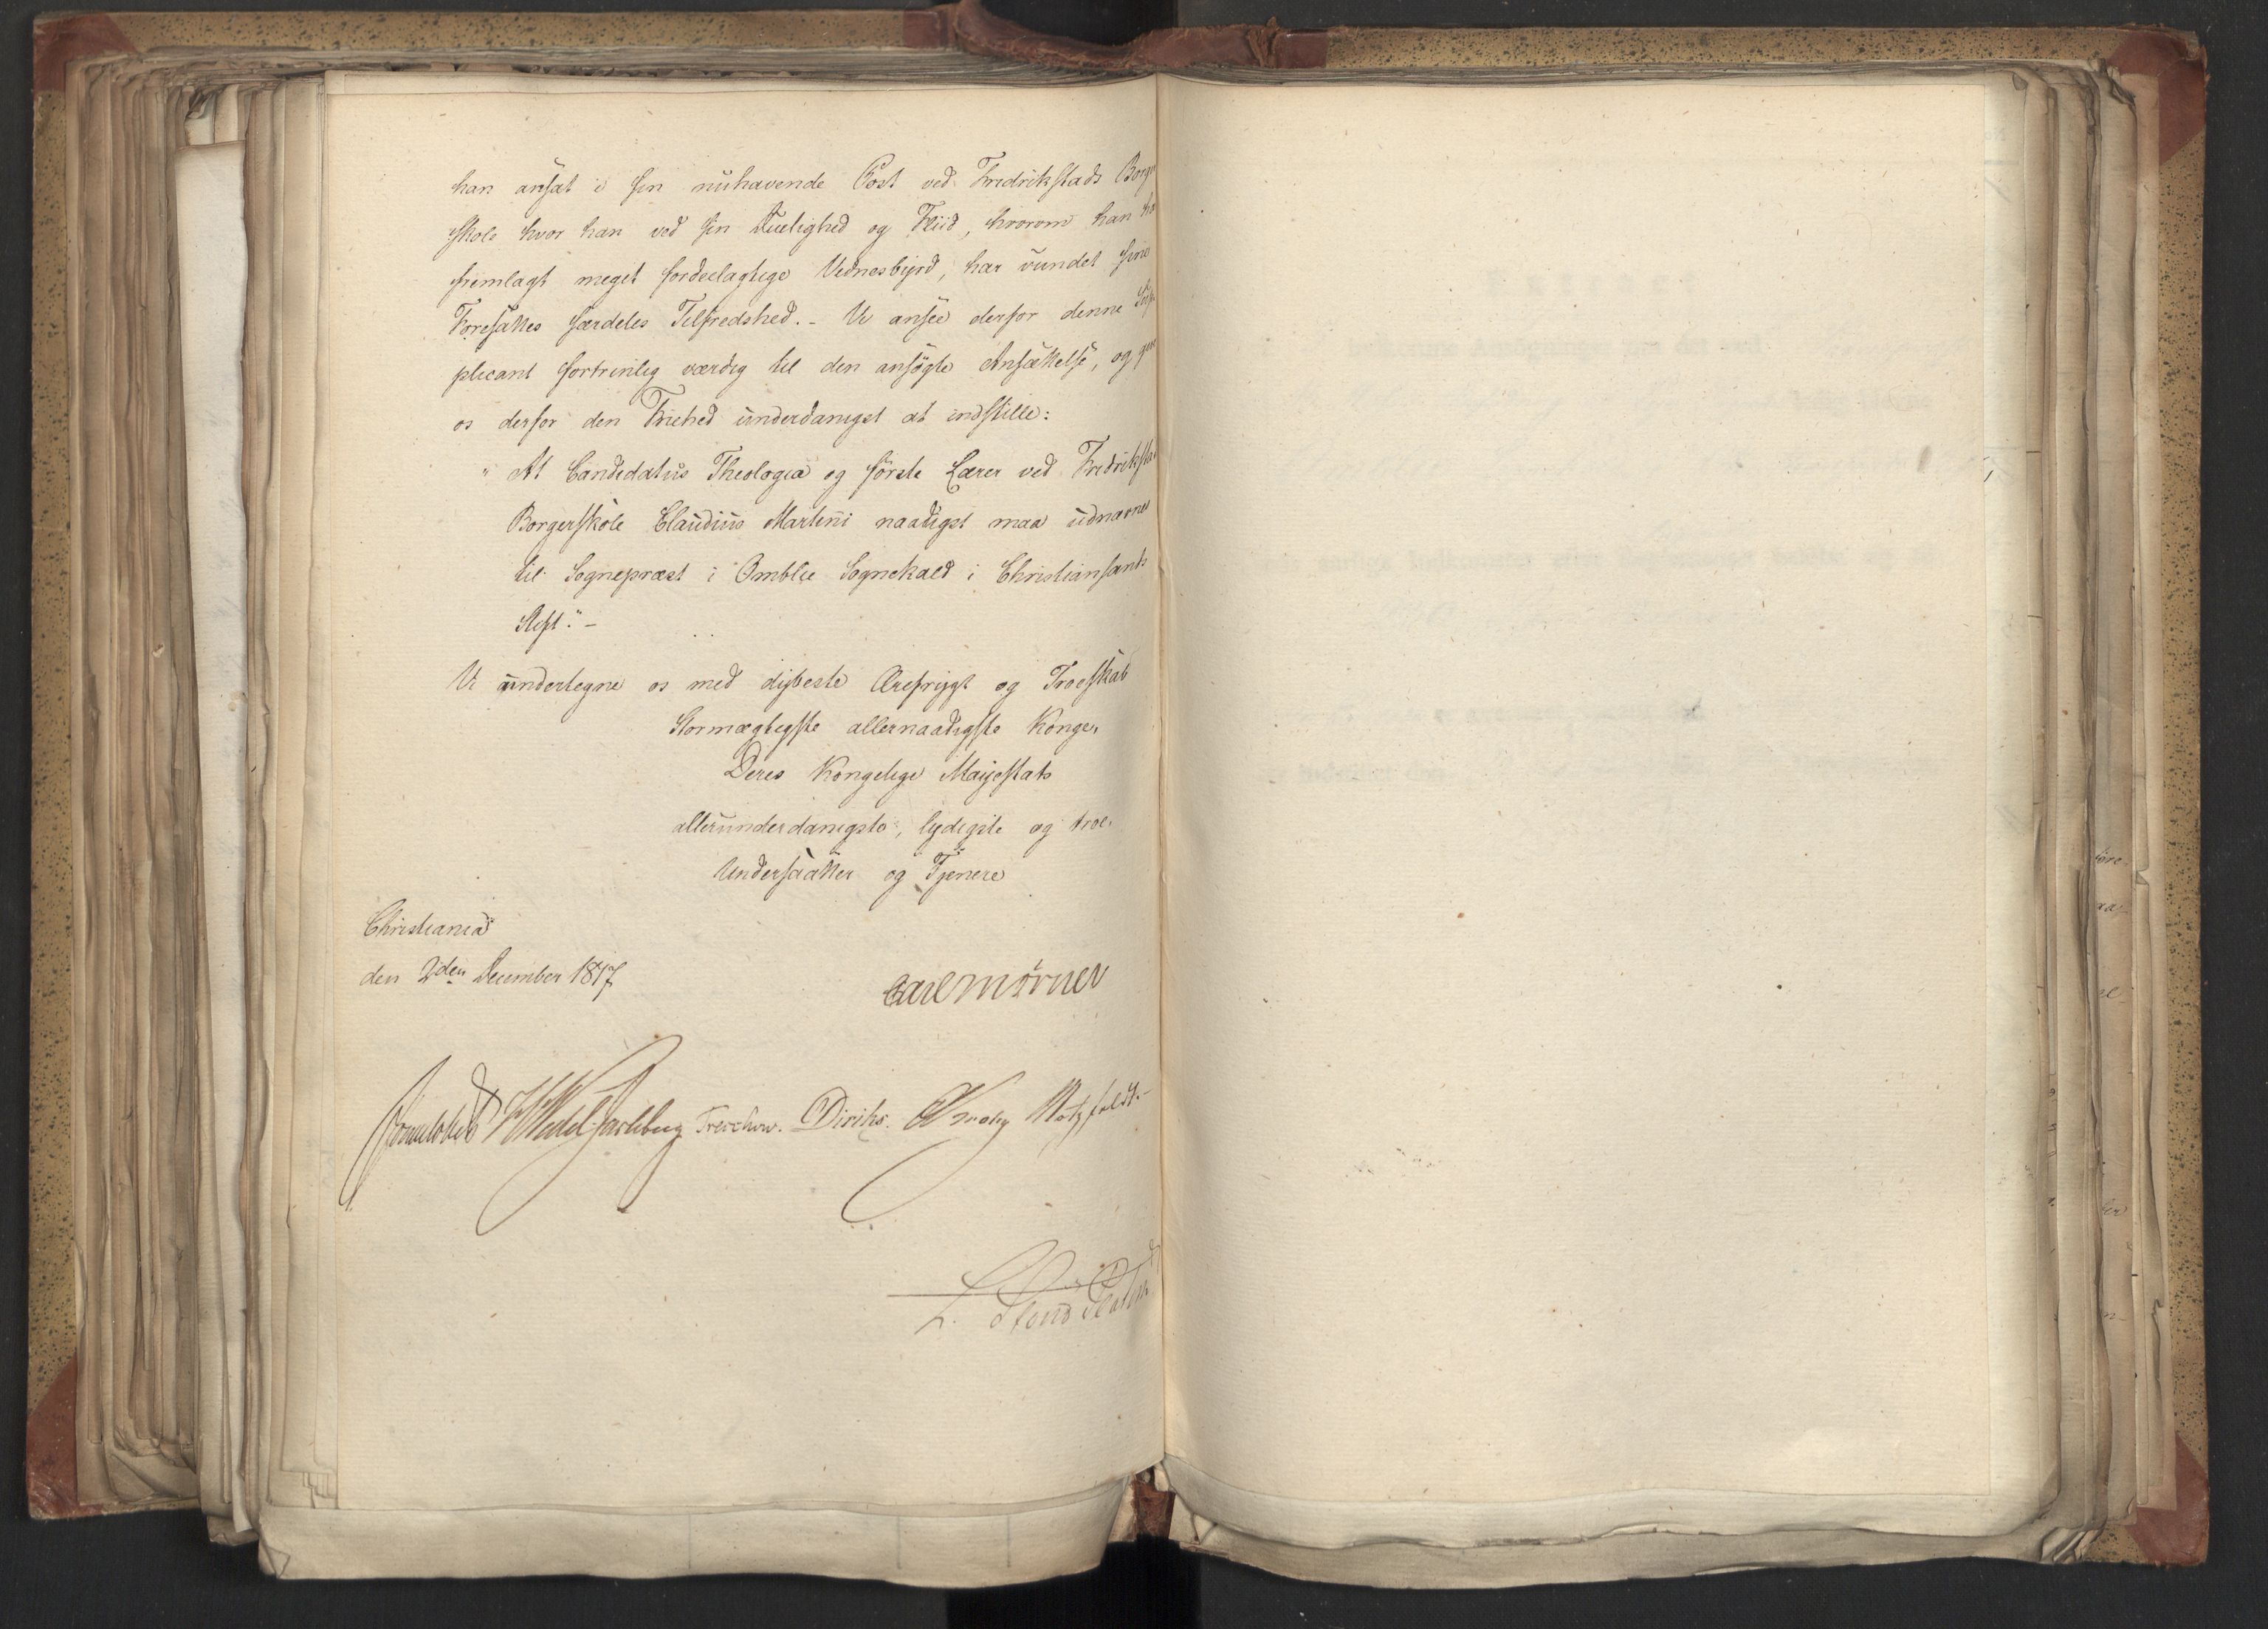 han ansat i sin nuhavende Post ved Fredrikstads Borger
skole hvor han ved sin Duelighed og Fliid, hvorom han har
fremlagt meget fordeelagtige Vidnesbyrd, har vundet sine
Foresattes særdeles Tilfredshed. - Vi ansee derfor denne Sup-
plicant fortrinlig værdig til den ansögte Ansættelse, og give
os derfor den Friehed underdanigst at indstille:
" At Candidatus Theologiæ og förste Lærer ved Fredrikstads
Borgerskole Claudius Martini naadigst maa udnævnes
til Sognepræst i Omblie Sognekald i Christiansands
Stift." -
Vi undertegne os med dybeste Ærefrygt og Troeskab
Stormægtigste allernaadigste Konge,
Deres Kongelige Majestæts
allerunderdanigste, lydigste og troe-
Undersaatter og Tjenere
Christiania
den 2den December 1817
Carl Mörner
Sommerhielm HWedel Jarlsberg Treschow. Diriks. Krohg Motzfeldt.
L. Stoud Platou